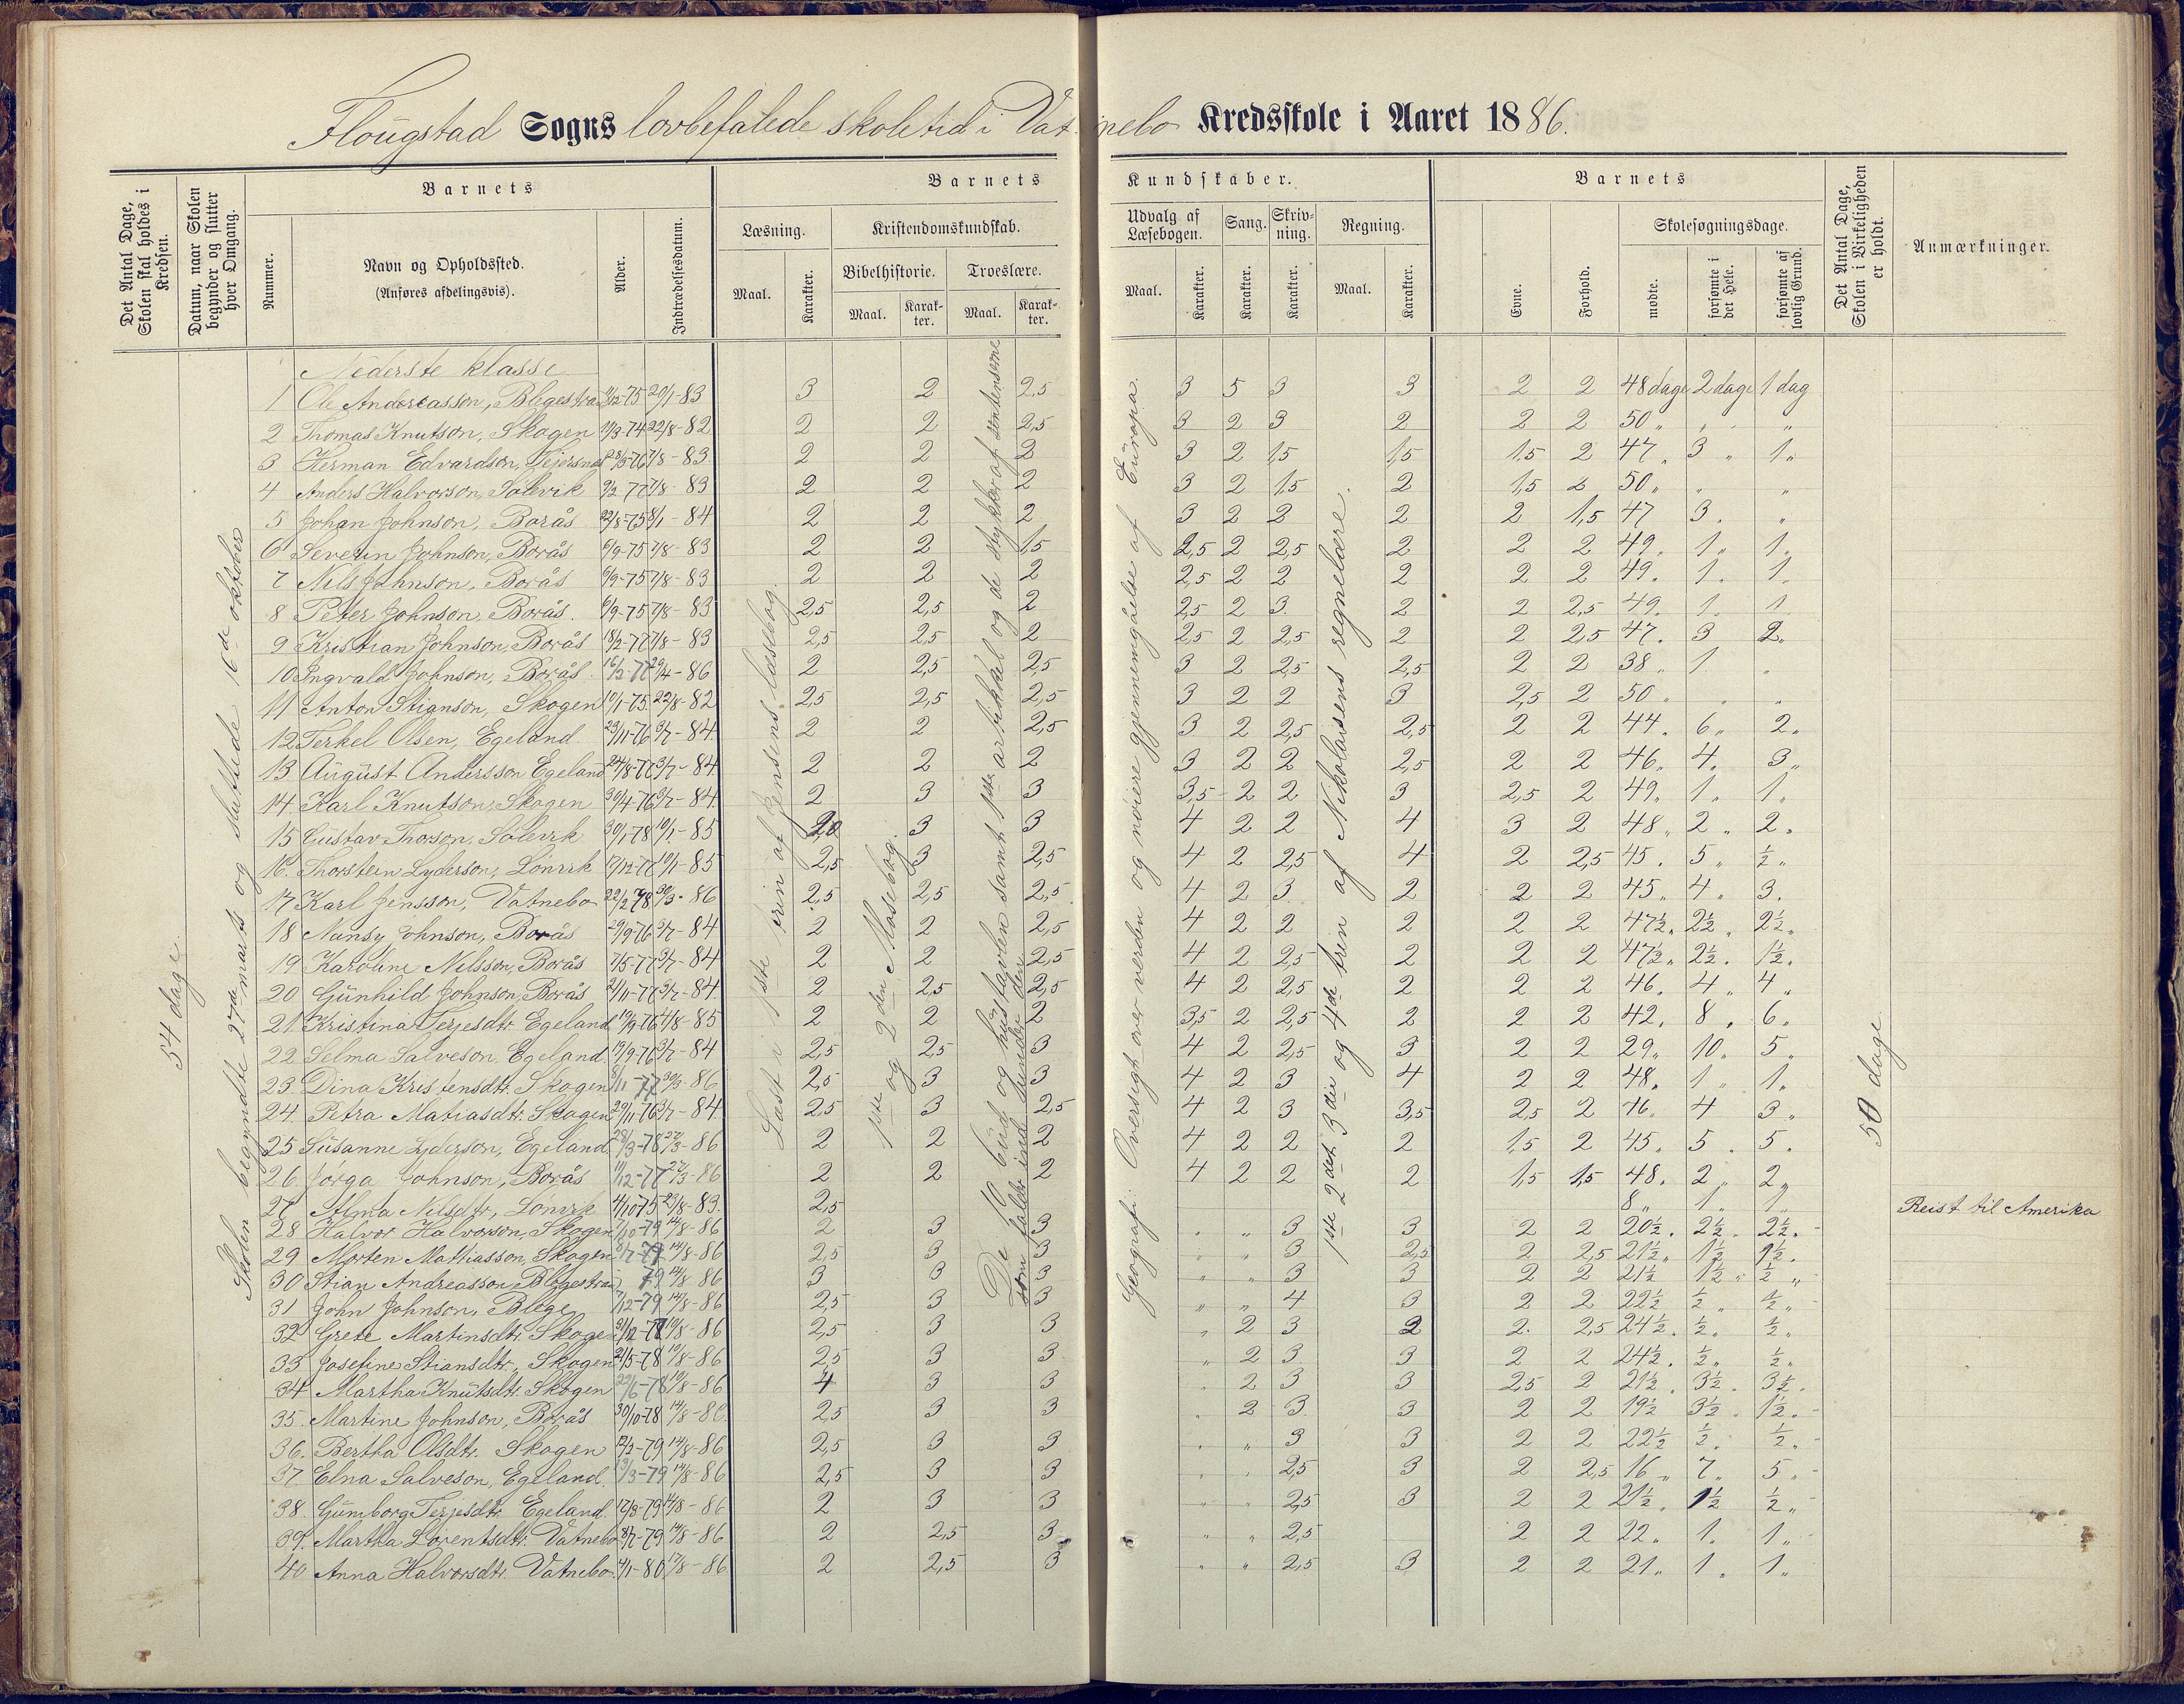 Flougstad Sogns lovbefalede skoletid i Vatnebo Kredsskole i Aaret 1886.
Det Antal Dage, Skolen skal holdes i Kredsen.
Datum, naar Skolen begynder og slutter hver Omgang.
Barnets
Nummer.
Navn og Opholdssted.
(Anføres afdelingsvis).
Alder.
Indtrædelsesdatum.
Barnets Kundskaber.
Læsning.
Maal.
Karakter.
Kristendomskundskab.
Bibelhistorie.
Maal.
Karakter.
Troeslære.
Maal.
Karakter.
Udvalg af Læsebogen.
Maal.
Karakter.
Sang.
Karakter.
Skrivning.
Karakter.
Regning.
Maal.
Karakter.
Barnets
Evne.
Forhold.
Skolesøgningsdage.
mødte.
forsømte i det Hele.
forsømte af lovlig Grund.
Det Antal Dage, Skolen i Virkeligheden er holdt.
Anmærkninger.
54 dage.
Skolen begyndte 27de marts og sluttede 16de oktober
Læst i 1ste trin af Jensens læsebog.
1ste og 2den Mosebog.
De 10 bud og hustavlen samt 1ste artikkel og de stykker af sentenserne som falder ind under den
Geografi: Oversigt over verden og nøiere gjennemgåelse af Europa.
1ste 2det 3die og 4de trin af Nikolaisens regnelære.
50 dage
Nederste klasse
1 Ole Andereasson, Blegestrand 11/12-75 20/1-83 3 2 2,5 3 5 3 3 2 2 48 dage 2 dage 1 dag
2 Thomas Knutson, Skogen 19/3-74 22/8-82 2 2 2,5 3 2 3 2 2 2 50 „ „ „
3 Herman Edvardson, 28/3-76 7/8-83 2 2 2 3 2 1,5 1,5 1,5 2 47 „ 3 „ 1 „
4 Anders Halvorson, Sølevik 9/2-77 7/8-83 2 2 2 3 2 1,5 2 1,5 2 50 „ „ „
5 Johan Johnson, Borås 22/8-75 8/1-84 2 2 2 3 2 2 2 2 1,5 47 3 . „
6 Severin Johnson, Borås 6/9-75 7/8-83 2 2 1,5 2,5 2 2,5 2 2 2 49. 1 „ 1 .
7 Nils Johnson, Borås 6/9-75 7/8-83 2 2 2 2,5 2 2 2 2 2 49. 1. 1.
8 Peter Johnson, Borås. 6/9-75 7/8-83 2,5 2,5 2 2,5 2 3. 2 2 2,5 49. 1. 1
9 Kristian Johnson, Borås 18/2-77 7/8-83 2,5 2,5 2 2,5 2 2,5 2 2 2,5 47. 3 2.
10 Ingvald Johnson, Borås. 16/2-77 29/4-86 2 2,5 2,5 3 2 2,5 2,5 2 2 38 „ 1 .
11 Anton Stianson, Skogen 10/1-75. 22/8-82 2,5 2,5 2,5 3 2 2 3 2,5 2 50 „ . .
12 Terkel Olsen, Egeland 29/11-76 3/7-84 2 2 2,5 3 2 2,5 2,5 2 2 44. 6 „ 2.
13 August Andersson Egeland 24/8-77 3/7-84 2 2 2 3 2 2 2,5 2 2 46. 4. 3 „
14. Karl Knutson Skogen 30/4-76 3/7-84 2 3 3 3,5 2 2 3 2,5 2 49. 1. 1.
15 Gustav Thorson, Sølevik 30/1-78 10/1-85 2,0 3 3 4 2 2 4 3 2 48 „ 2 „ 2.
16. Thorstein Lyderson, Lønvik 17/12-77 10/1-85 2,5 3 2,5 4 2 2,5 4 2 2,5 45. 5 „ ½ „
17 Karl Jensson, Vatnebo 22/2-78 30/3-86 2,5 2,5 2,5 4 2 3. 2 2 2 45 „ 4 „ 3.
18 Nansy Johnson, Borås 29/9-76 3/7-84 2 2 2,5 4 2 2 2 2 2 47½. 2½ . 2½ .
19 Karoline Nilsson, Borås 7/5-77 3/7-84 2 2 2,5 4 2 2,5 2 2 2 47½ „ 2½ . 1½ .
20 Gunhild Johnson, Borås 2/11-77 3/7-84. 2 2,5 2,5 4 2 2,5 2 2 2 46. 4 „ 4 „
21. Kristina Terjesdtr. Egeland 19/9-76 4/8-85 2 2 2 3,5 2 2,5 2 2 2 42. 8 . 6.
22. Selma Salveson, Egeland. 19/9-76 3/7-84 2,5 2,5 3 4 2 2,5 3 2 2 29 „ 10. 5 „
23. Dina Kristensdtr. Skogen /11-77 30/3-86 2,5 3 3 4 2 3 4 2 2 48. 1 „ 1.
24. Petra Matiasdtr. Skogen 29/11-76 3/7-84 2,5 3 2,5 4 2 3 3,5 2,5 2 46. 4 3 „
25 Susanne Lyderson, Egeland 28/3-78 27/3-86 2 2 2 4 2 2 2 1,5 2 45. 5 . 5.
26. Jørga Johnson, Borås 11/12-77 27/3-86 2 2 2 4 2 2 2 1,5 1,5 48. 2 „ 2 „
27. Alma Nilsdtr., Lønvik 4/10-75 23/8-83. 2,5 8 „ 1 „ 1 „ Reist til Amerika
28 Halvor Halvorson, Skogen 7/10-79 14/8-86 2 3 3 „ „ 3 3 2 2 20½ . 2½ „ 2½ .
29 Morten Mathiasson, Skogen 8/7-79 14/8-86 2,5 3 3 „ „ 3 2,5 2 2,5 21½ „ 1½ 1½ .
30 Stian Andreasson Blegestrand 79 14/8-86 3 3 3 „ „ 3 3 2 2 21½ 1½ „ ½ „
31 John Johnson, Blege 7/12-79 14/8-86 2,5 3 3 „ „ 4 3 2 2 22½ ½ „ ½ „
32 Grete Martinsdtr. Skogen 31/12-77 10/8-86 2,5 3 3 „ 2 3 2 2. 2,5 24½ . ½ „ ½ „
33 Josefine Stiansdtr., Skogen 21/5-78 10/8-86 2,5 3 3 „ 2 3 3 2 2 24½ . ½ „ ½ „
34 Martha Knutsdtr. Skogen 22/6-78 10/8-86 4 3 3 „ 2 3 3 2,5 2 21½ . 3½ . 3½ .
35. Martine Johnson, Borås 30/10-78 14/8-86. 2,5 3 3 . 2 3. 3 2 2 19½ 3½ . 1½ .
36. Bertha Olsdtr. Skogen 12/2-79 14/8-86 2,5 3 3 „ „ 3 3 2 2 22½ ½ . ½ „
37. Elna Salveson, Egeland. 13/3-79 14/8-86 2,5 3 3 „ „ 2,5 3 2 2,5 16 „ 7 „ 5 „
38. Gumborg Terjesdtr. Egeland. 17/3-79 14/8-86 2 3 3 „ „ 2,5 3 2 2 21½ . 1½ ½ „
39. Martha Lorentsdtr. Vatnebo 8/7-79 14/8-86 2 2,5 3 „ „ 2,5 2 2 22 „ 1. 1 „
40 Anna Halvorsdtr. Vatnebo. 4/1-80 17/8-86 2 2,5 3 „ „ 2,5 3 2 2 21 „ 1 „ 1 .